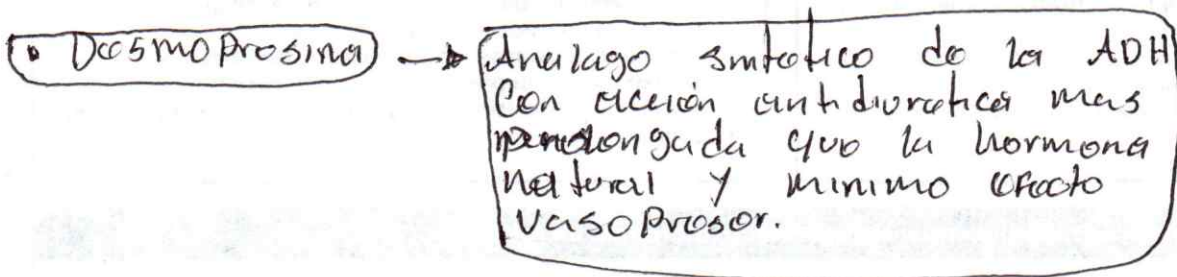 • Desmopresina →
Analago sintetico de la ADH
Con acción antidiuretica mas
prolongada que la hormona
natural y minimo efecto
vasopresor.